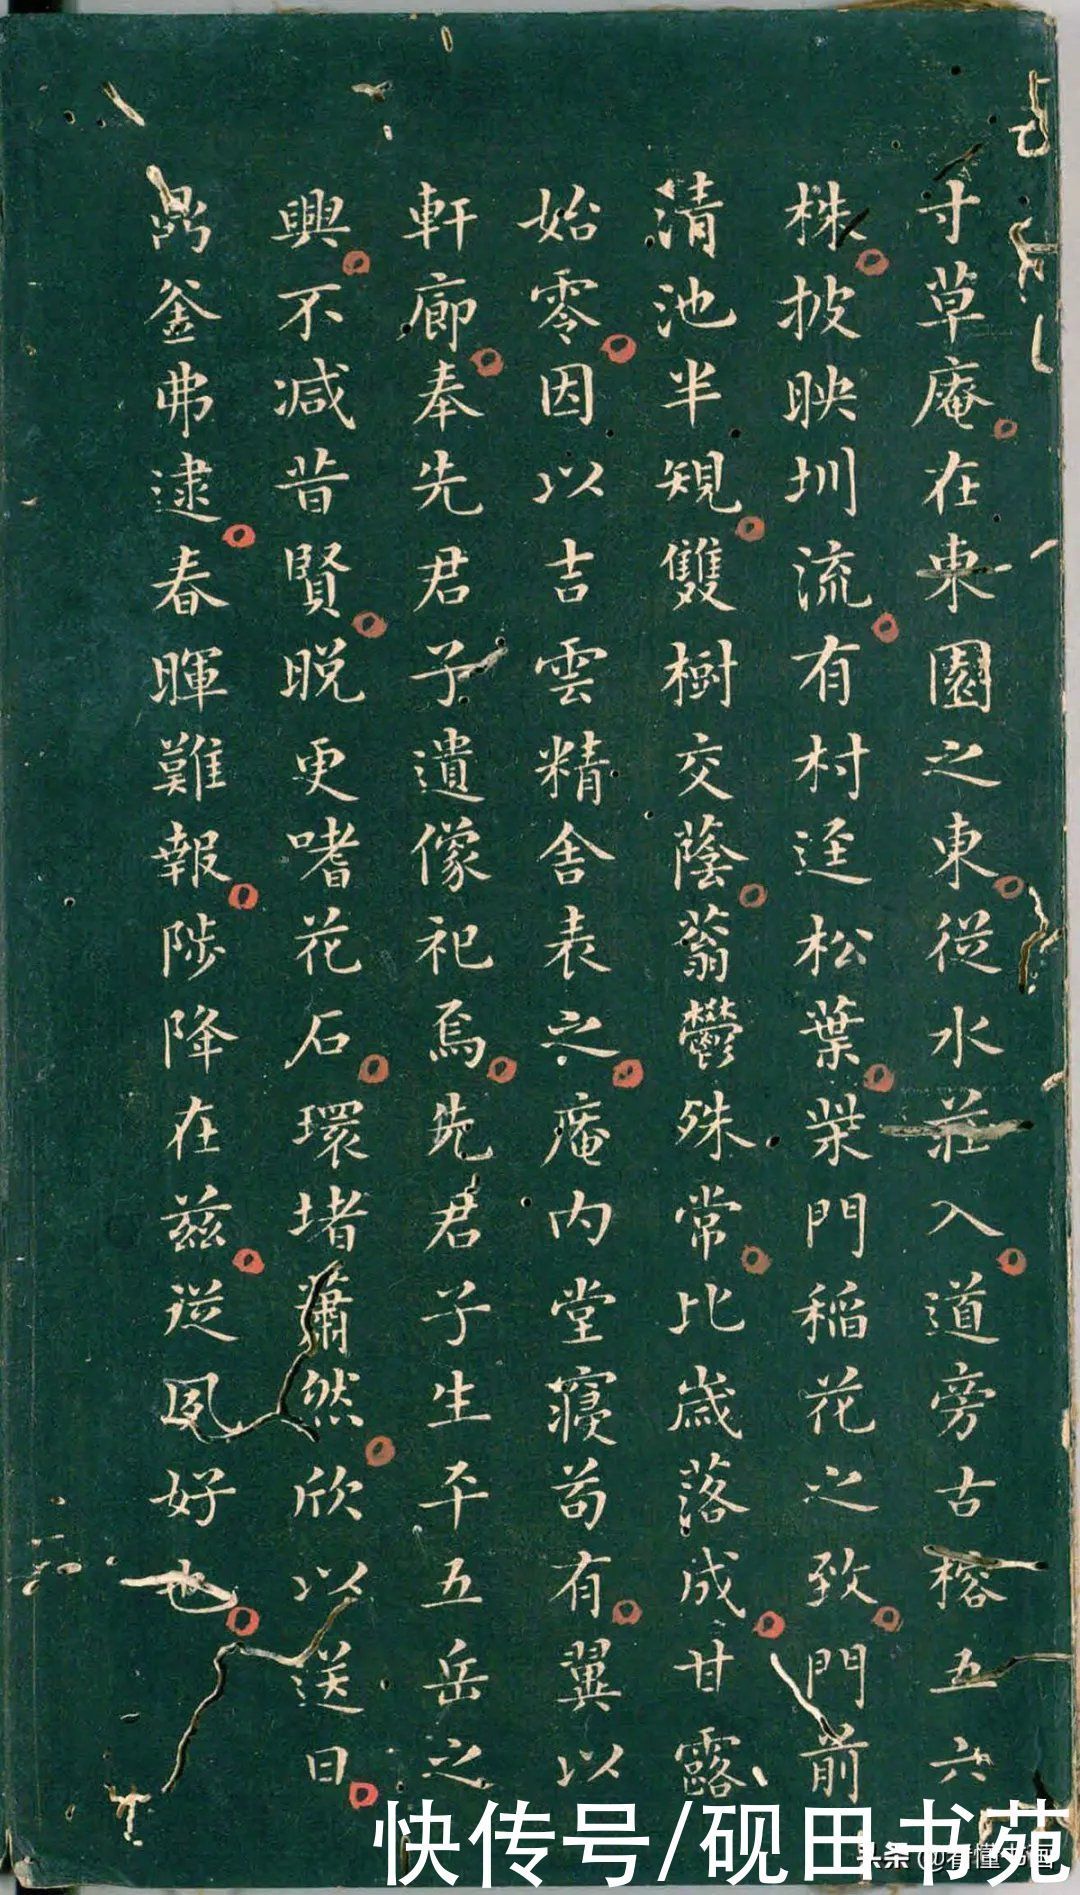 寸草庵在東園之東從水莊入道旁古榕五六
株披映圳流有村迳松葉柴門稲花之致門前
清池半規雙樹交蔭蓊鬱殊常比歲落成甘露
始零因以吉雲精舍表之庵内堂寢苟有翼以
軒廊奉先君子遺像祀焉先君子生平五岳之
興不减昔賢晚更嗜花石環堵蕭然欣以送日
鼎釜弗逮春暉難報陟降在兹從夙好也
快传号/砚田书苑
头条@看懂书画